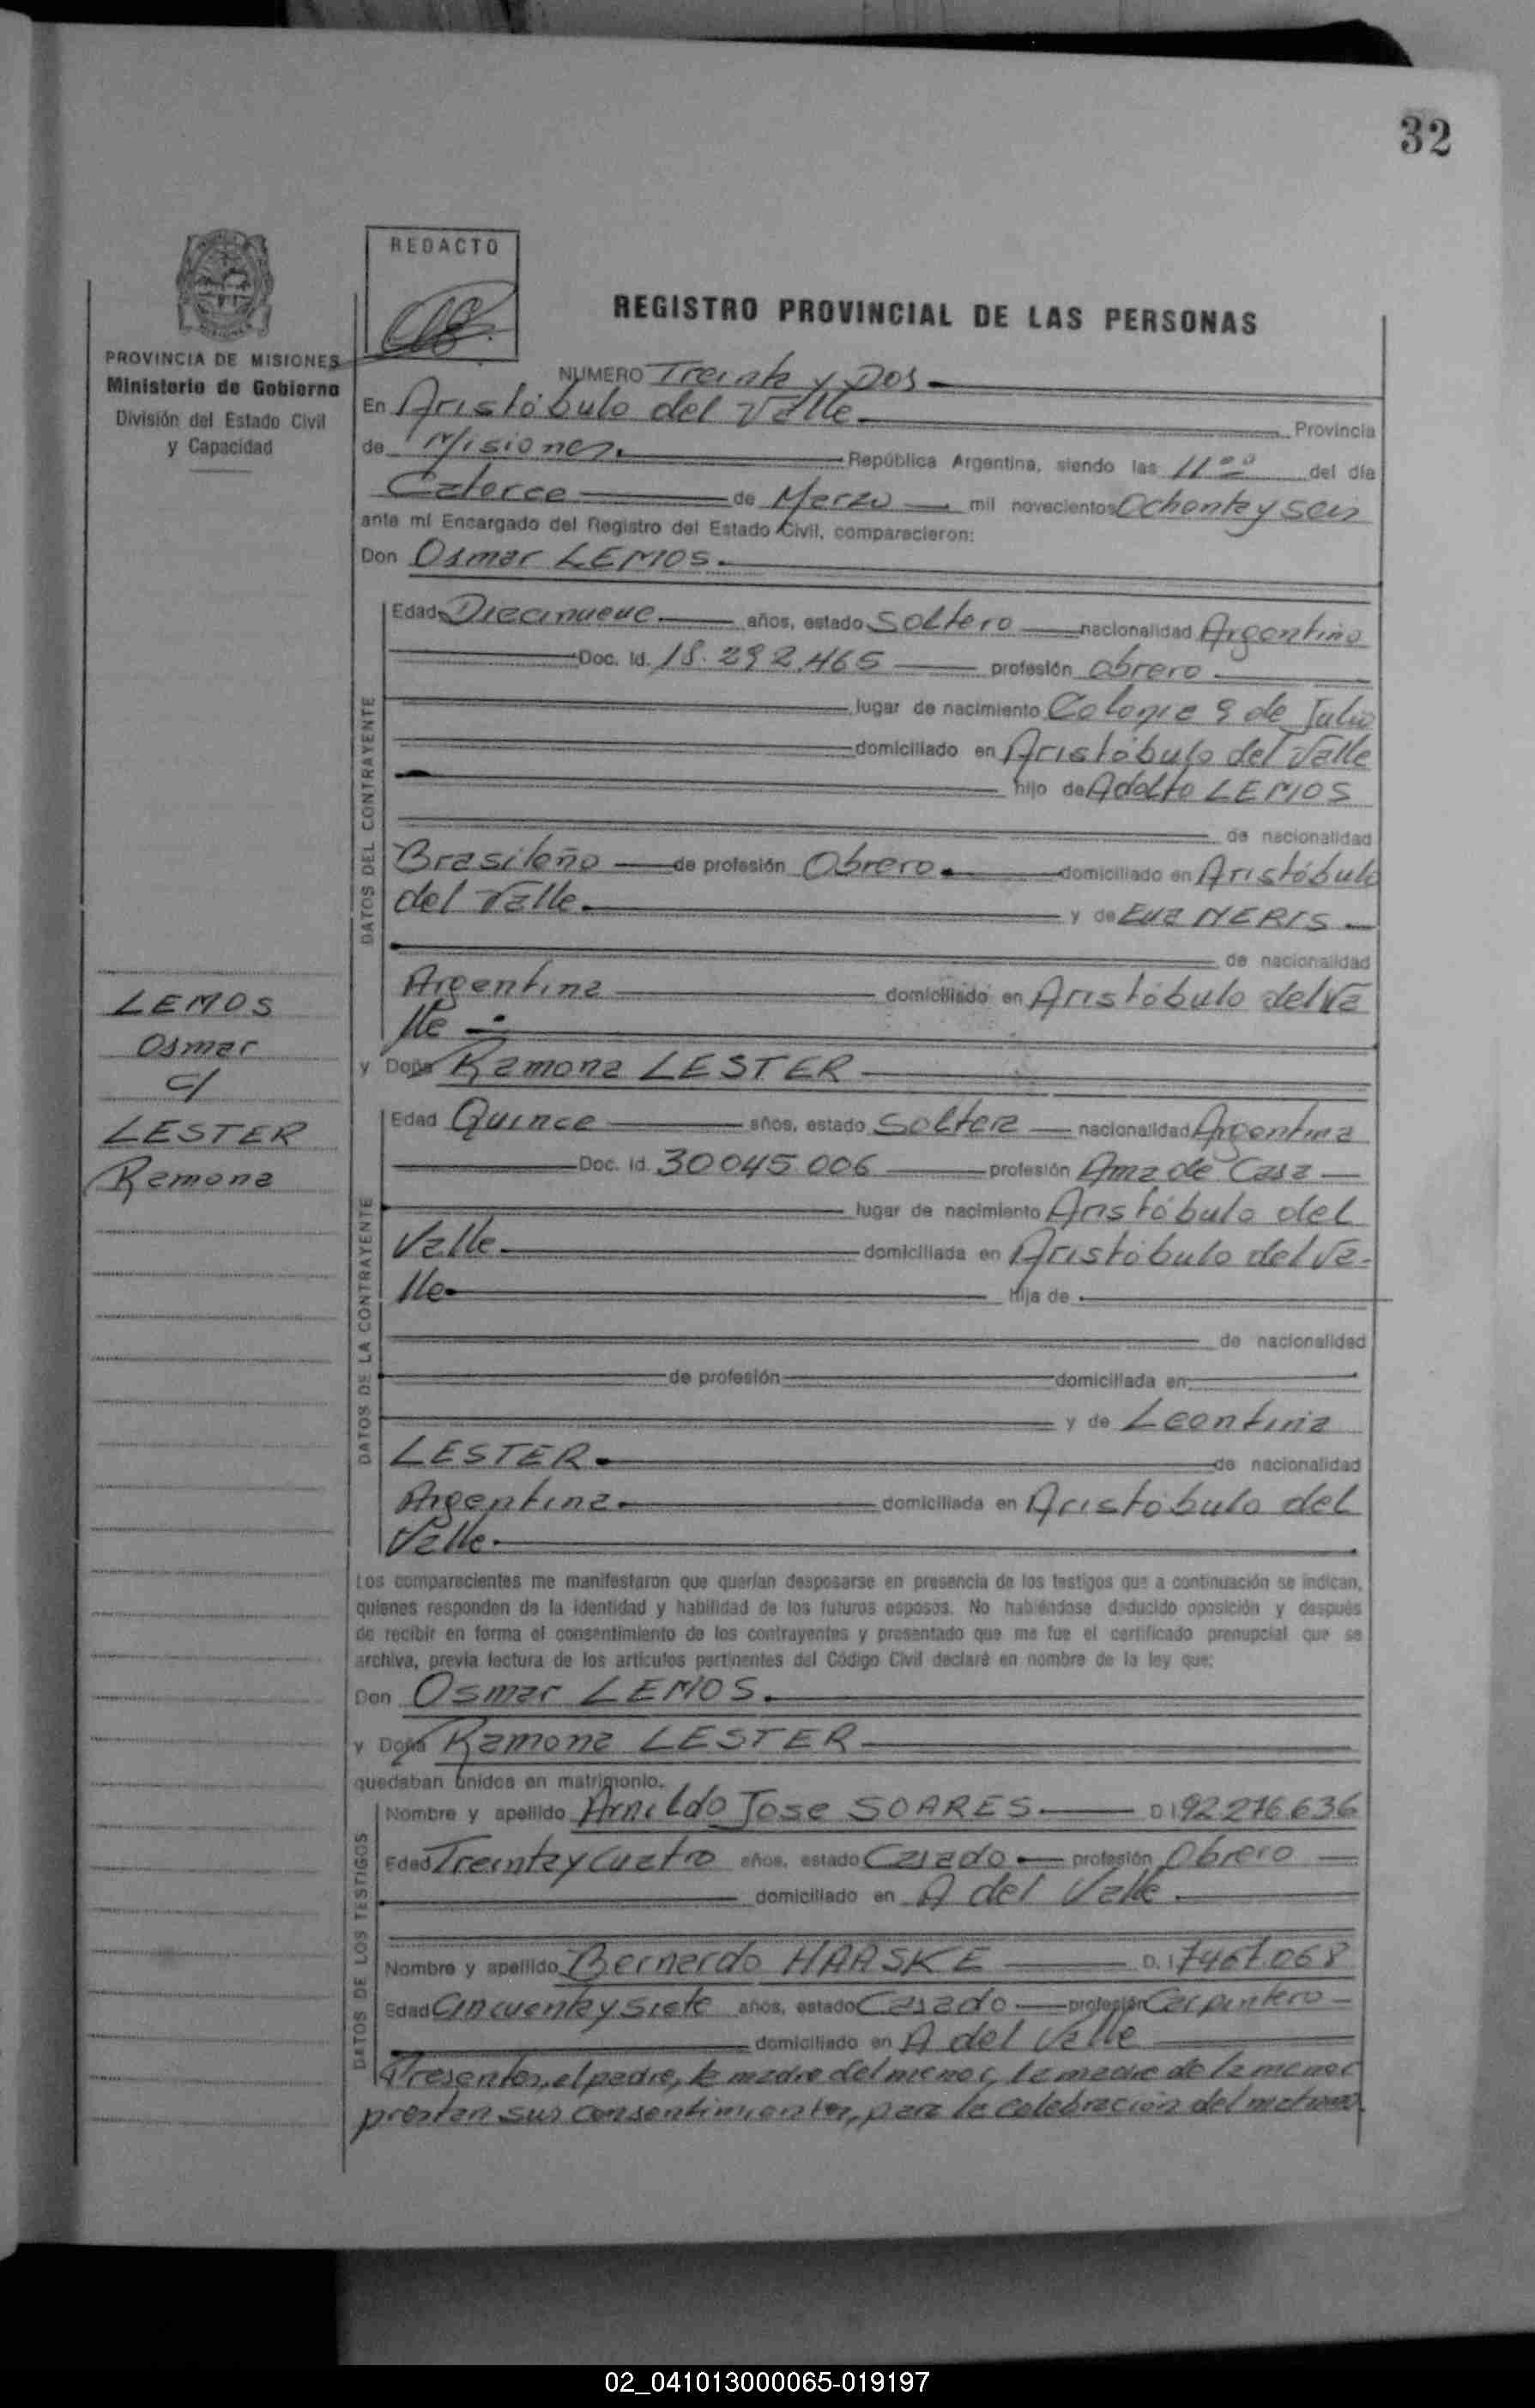 32
REDACTO
REGISTRO PROVINCIAL DE LAS PERSONAS
PROVINCIA DE MISIONES
Ministerio de Gobierno
División del Estado Civil
y Capacidad
NUMERO Treinta y Dos
En Aristóbulo del Valle Provincia
de Misiones. República Argentina, siendo las 11:00 del día
Catorce de Marzo mil novecientos Ochenta y seis
ante mí Encargado del Registro del Estado Civil, comparecieron:
Don Osmar LEMOS.
DATOS DEL CONTRAYENTE
Edad Diecinueve años, estado Soltero nacionalidad Argentino
Doc. Id. 18.292.465 profesión obrero
lugar de nacimiento Colonia 9 de Julio
domiciliado en Aristóbulo del Valle
hijo de Adolfo LEMOS
de nacionalidad
Brasileño de profesión Obrero. domiciliado en Aristóbulo
del Valle. y de Eva NERIS
de nacionalidad
Argentina domiciliado en Aristóbulo del Va
lle
LEMOS
Osmar
c/
LESTER
Ramona
y Doña Ramona LESTER
DATOS DE LA CONTRAYENTE
Edad Quince años, estado Soltera nacionalidad Argentina
Doc. Id. 30045.006 profesión Ama de Casa
lugar de nacimiento Aristóbulo del
Valle domiciliada en Aristóbulo del Va-
lle hija de
de nacionalidad
de profesión domiciliada en
y de Leontina
LESTER. de nacionalidad
Argentina. domiciliada en Aristóbulo del
Valle.
Los comparecientes me manifestaron que querían desposarse en presencia de los testigos que a continuación se indican,
quienes responden de la identidad y habilidad de los futuros esposos. No habiéndose deducido oposición y después
de recibir en forma el consentimiento de los contrayentes y presentado que me fue el certificado prenupcial que se
archiva, previa lectura de los artículos pertinentes del Código Civil declaré en nombre de la ley que:
Don Osmar LEMOS.
y Doña Ramona LESTER
quedaban unidos en matrimonio.
DATOS DE LOS TESTIGOS
Nombre y apellido Arnildo Jose SOARES D.I 92.276.636
Edad Treinta y Cuatro años, estado Casado profesión Obrero
domiciliado en A del Valle
Nombre y apellido Bernardo HAASKE D.I 7467.068
Edad Cincuenta y Siete años, estado Casado profesión Carpintero
domiciliado en A del Valle
Presentes, el padre, la madre del menor, la madre de la menor
prestan sus consentimientos, para la celebración del matrimo.
02_041013000065-019197